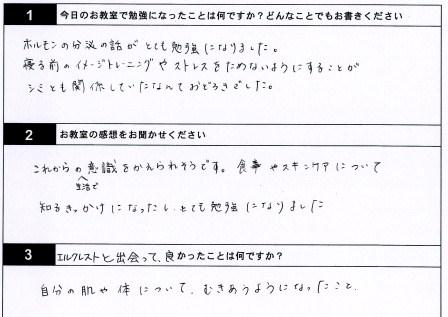 1 今日のお教室で勉強になったことは何ですか？どんなことでもお書きください
ホルモンの分泌の話がとても勉強になりました。
寝る前のイメージトレーニングやストレスをためないようにすることが
シミとも関係していたなんておどろきでした。
2 お教室の感想をお聞かせください
これからの意識をかえられそうです。食事やスキンケアについて
生活で
知るきっかけになったし、とても勉強になりました
3 エルクレストと出会って、良かったことは何ですか？
自分の肌や体について、むきあうようになったこと、